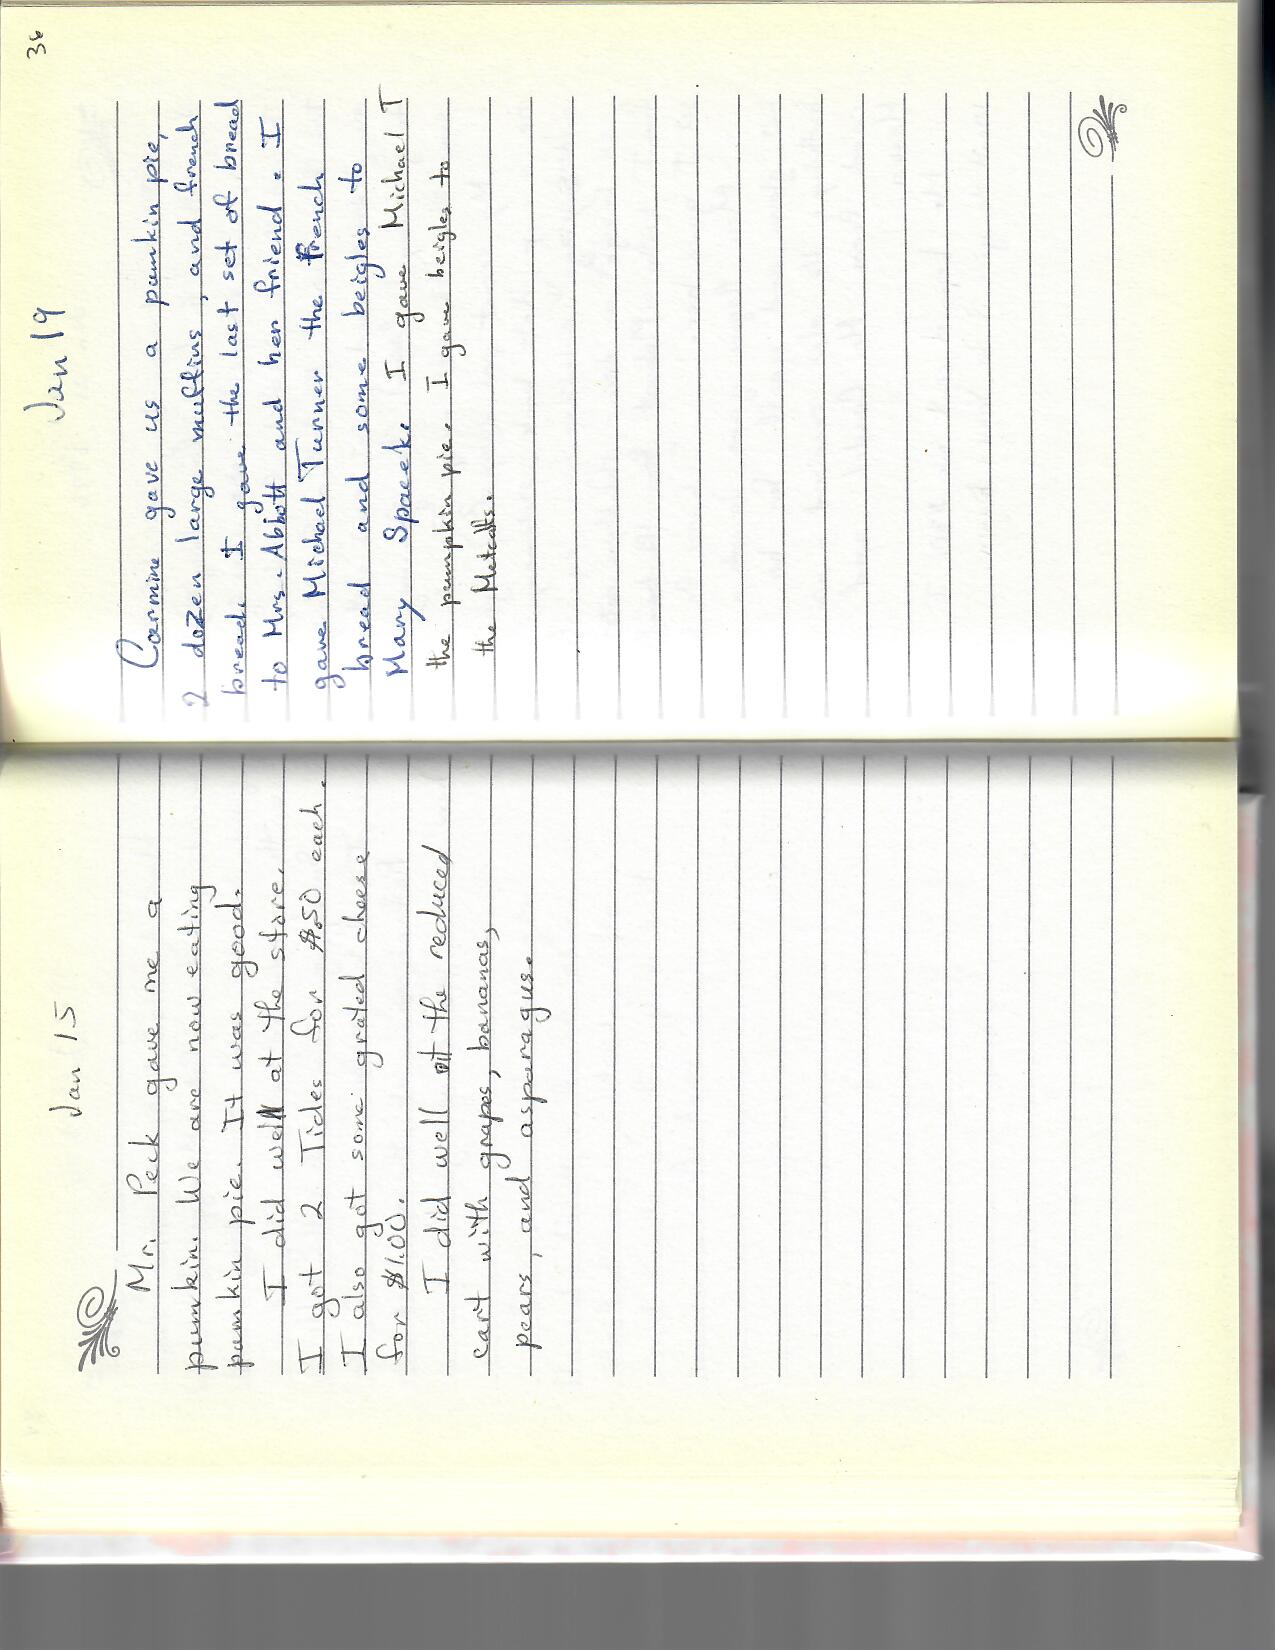 Jan 15
Mr. Peck gave me a
pumkin. We are now eating
pumkin pie. It was good.
I did well at the store.
I got 2 Tides for $.50 each.
I also got some grated cheese
for $1.00.
I did well at the reduced
cart with grapes, bananas,
pears, and asparagus.
36
Jan 19
Carmine gave us a pumkin pie,
2 dozen large muffins, and french
bread. I gave the last set of bread
to Mrs. Abbott and her friend. I
gave Michael Turner the french
bread and some beigles to
Mary Spaeek. I gave Michael T
the pumpkin pie. I gave beigles to
the Metcalfs.